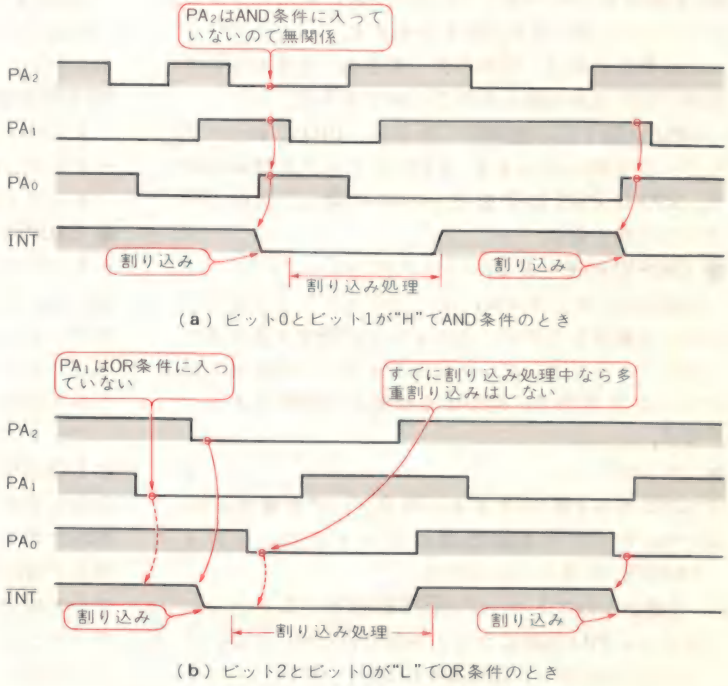 PA₂はAND条件に入って
いないので無関係
PA₂
PA₁
PA₀
INT
割り込み
割り込み処理
割り込み
(a) ビット0とビット1が“H”でAND条件のとき
PA₁はOR条件に入っ
ていない
すでに割り込み処理中なら多
重割り込みはしない
PA₂
PA₁
PA₀
INT
割り込み
割り込み処理
割り込み
(b) ビット2とビット0が“L”でOR条件のとき